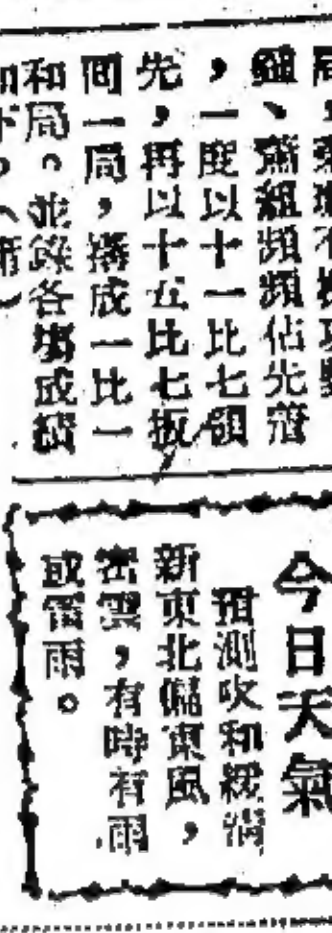 蕭組頻頻佔先
，一度以十一比七領
先，再以十五比七扳
回一局，搭成一比一
和局。並錄各場成績
如下。
今日天氣
預測吹和緩清
新東北偏東風，
密雲，有時有雨
或雷雨。